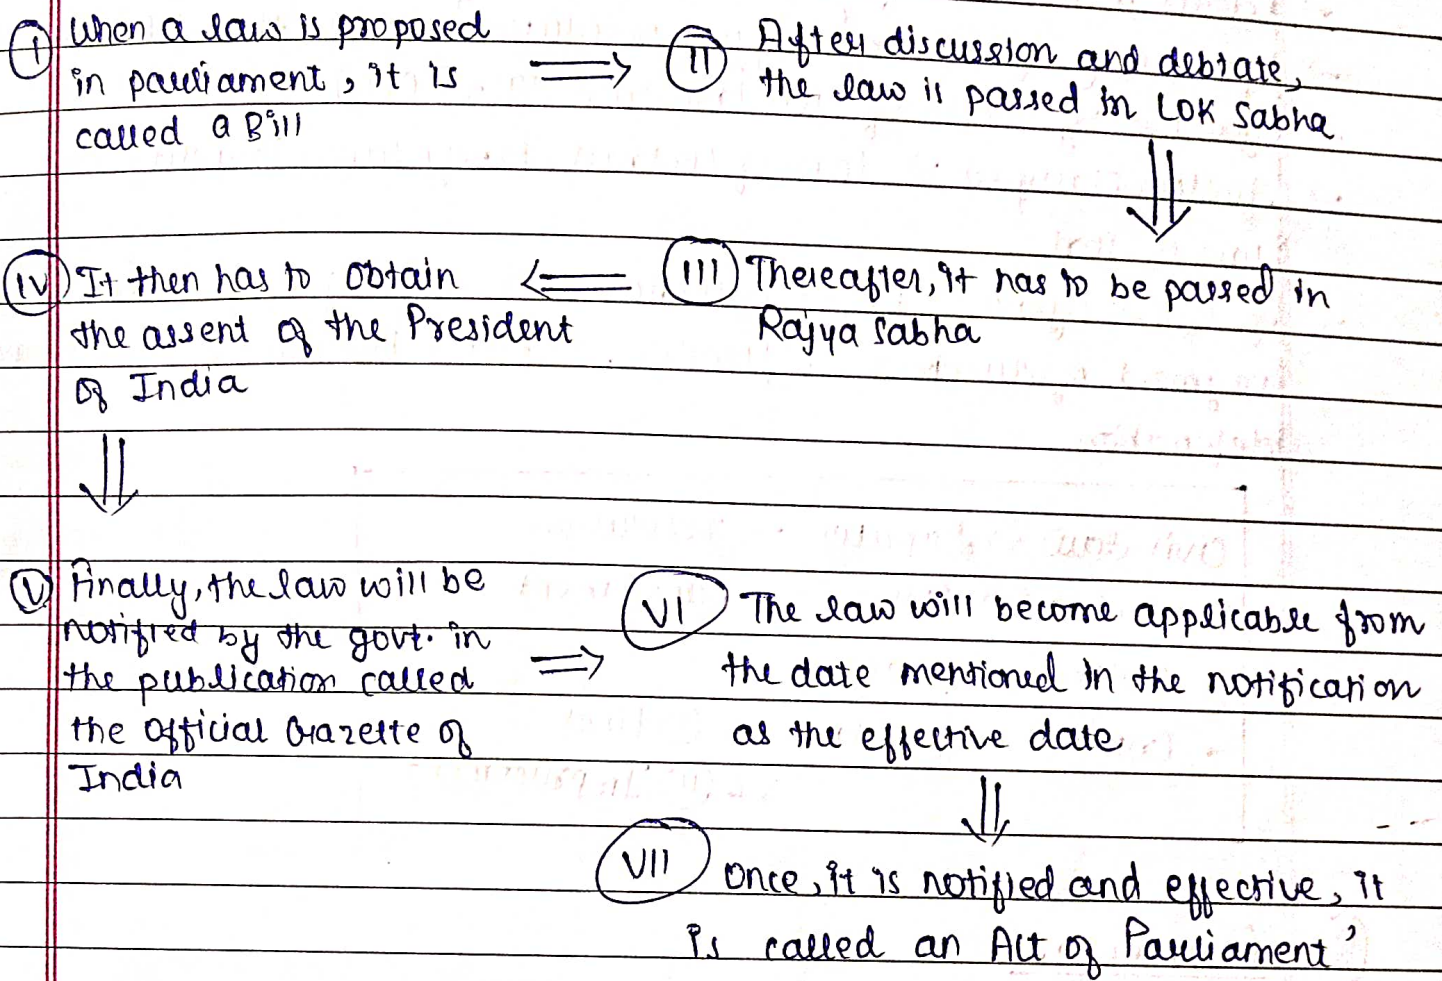 I When a law is proposed
in parliament, it is
called a Bill
II After discussion and debate,
the law is passed in Lok Sabha
III Thereafter, it has to be passed in
Rajya Sabha
IV It then has to obtain
the assent of the President
of India
V Finally, the law will be
notified by the govt. in
the publication called
the Official Gazette of
India
VI The law will become applicable from
the date mentioned in the notification
as the effective date
VII Once, it is notified and effective, it
is called an Act of Parliament'